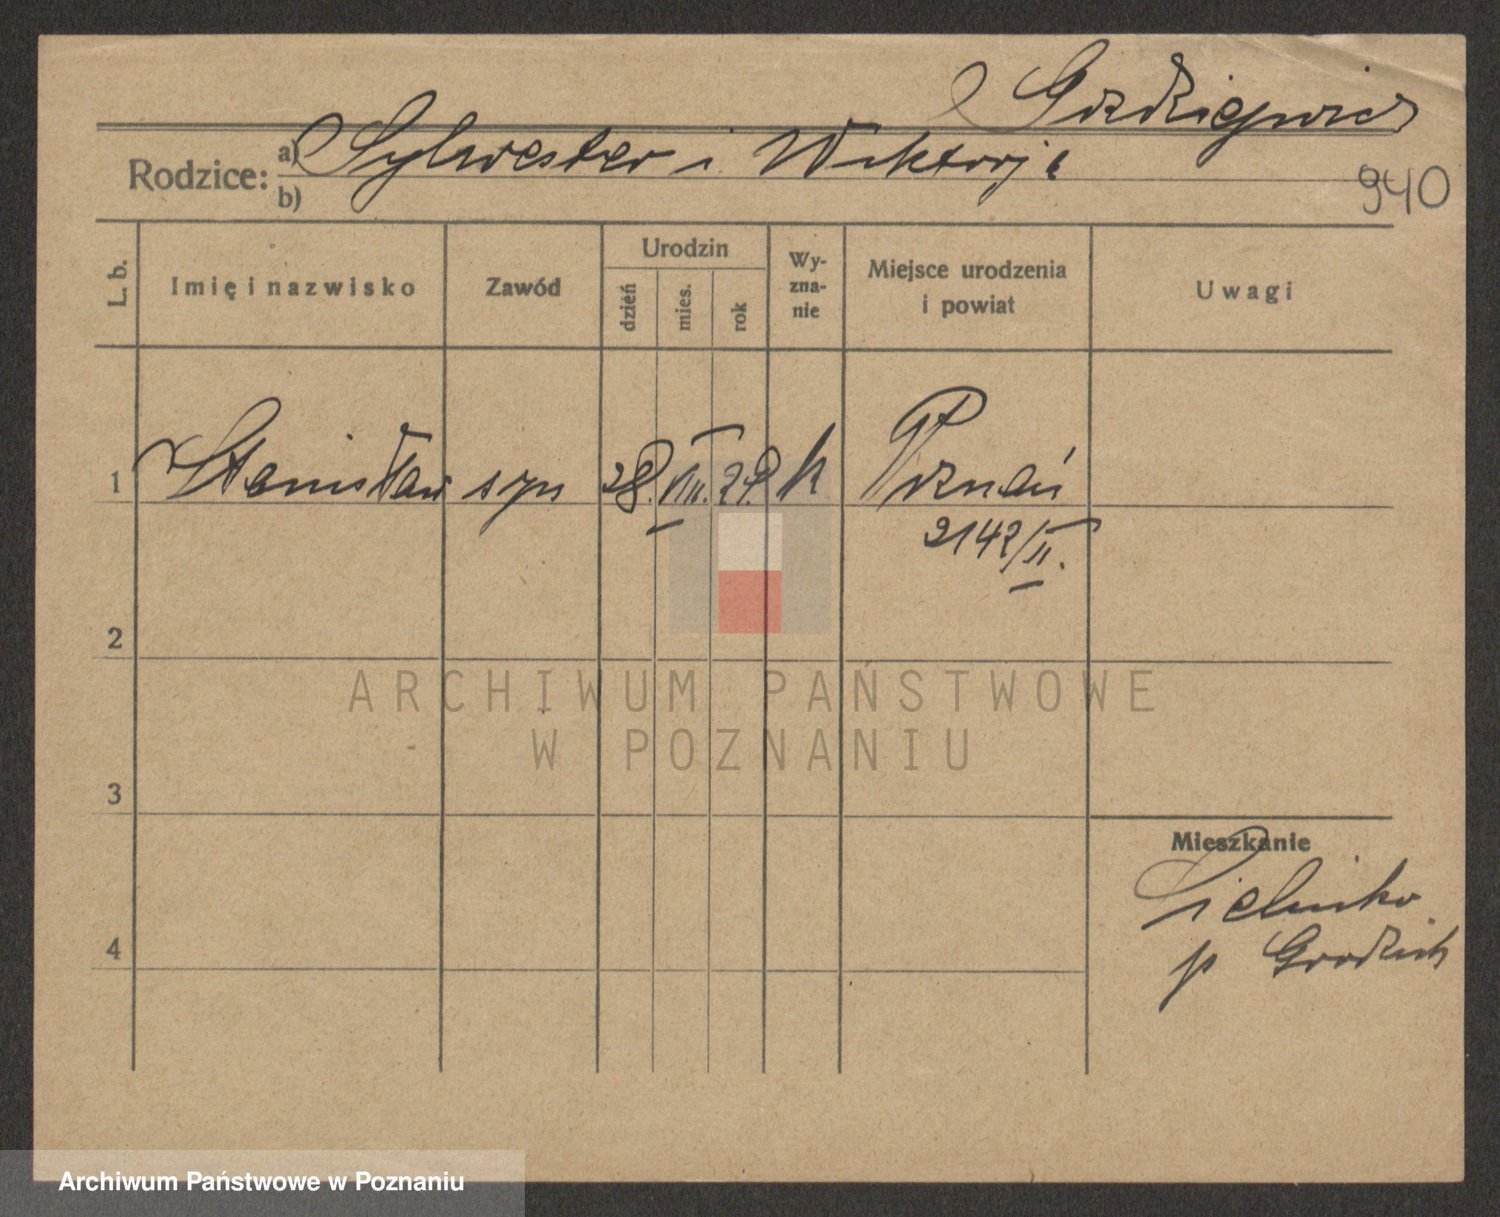 Rodzice: a) Sylwester i Wiktorja
b)
940
L. b.
Imię i nazwisko
Zawód
Urodzin
dzień
mies.
rok
Wy-
zna-
nie
Miejsce urodzenia
i powiat
Uwagi
1 Stanisław syn 28. VIII. k Poznań
2142/II.
2
ARCHIWUM PAŃSTWOWE
W POZNANIU
3
Mieszkanie
p Grodzisk
4
Archiwum Państwowe w Poznaniu